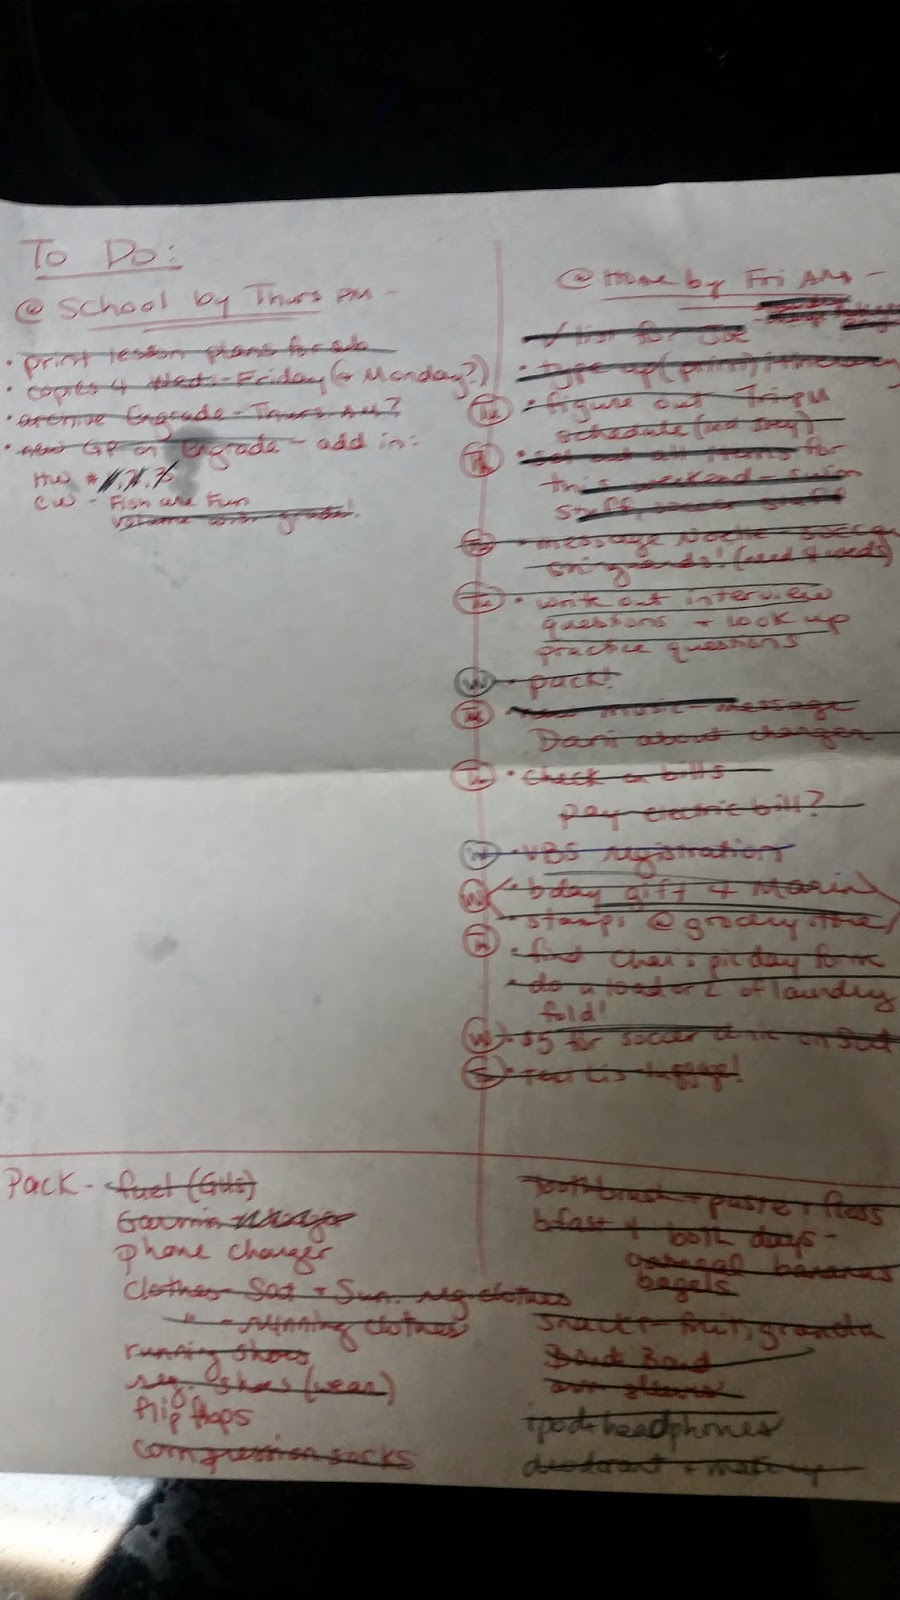 To Do:
@ School by Thurs PM -
• print lesson plans for sub
• copies 4 - Friday (+ Monday?)
• archive Engrade - Thurs AM?
• new GP on Engrade - add in:
HW #
CW - Fish are Fun
volume with
@ Home by Fri AM -
list for
• type up (print) itinerary
Tu • figure out Fri PM
schedule
• set out all items for
this weekend - swim
stuff, soccer stuff
• message Noelle - soccer
shinguards! (need 4 weds)
Tu • write out interview
questions + look up
practice questions
W • pack!
• new music - message
Dani about charger
Tu • check on bills
pay electric bill?
W • VBS registration
W • bday gift 4 Marin
• stamps @ grocery store
• find pic day form
• do a load or 2 of laundry
fold!
W • $5 for soccer on Sat
• luggage!
Pack - fuel (GUs)
Garmin
phone charger
clothes - Sat + Sun. reg clothes
" - running clothes
running shoes
reg. shoes (wear)
flip flops
compression socks
toothbrush + paste + floss
bfast 4 both days -
oatmeal bananas
bagels
snacks - fruit, granola
arm sleeves
ipod + headphones
deodorant + makeup